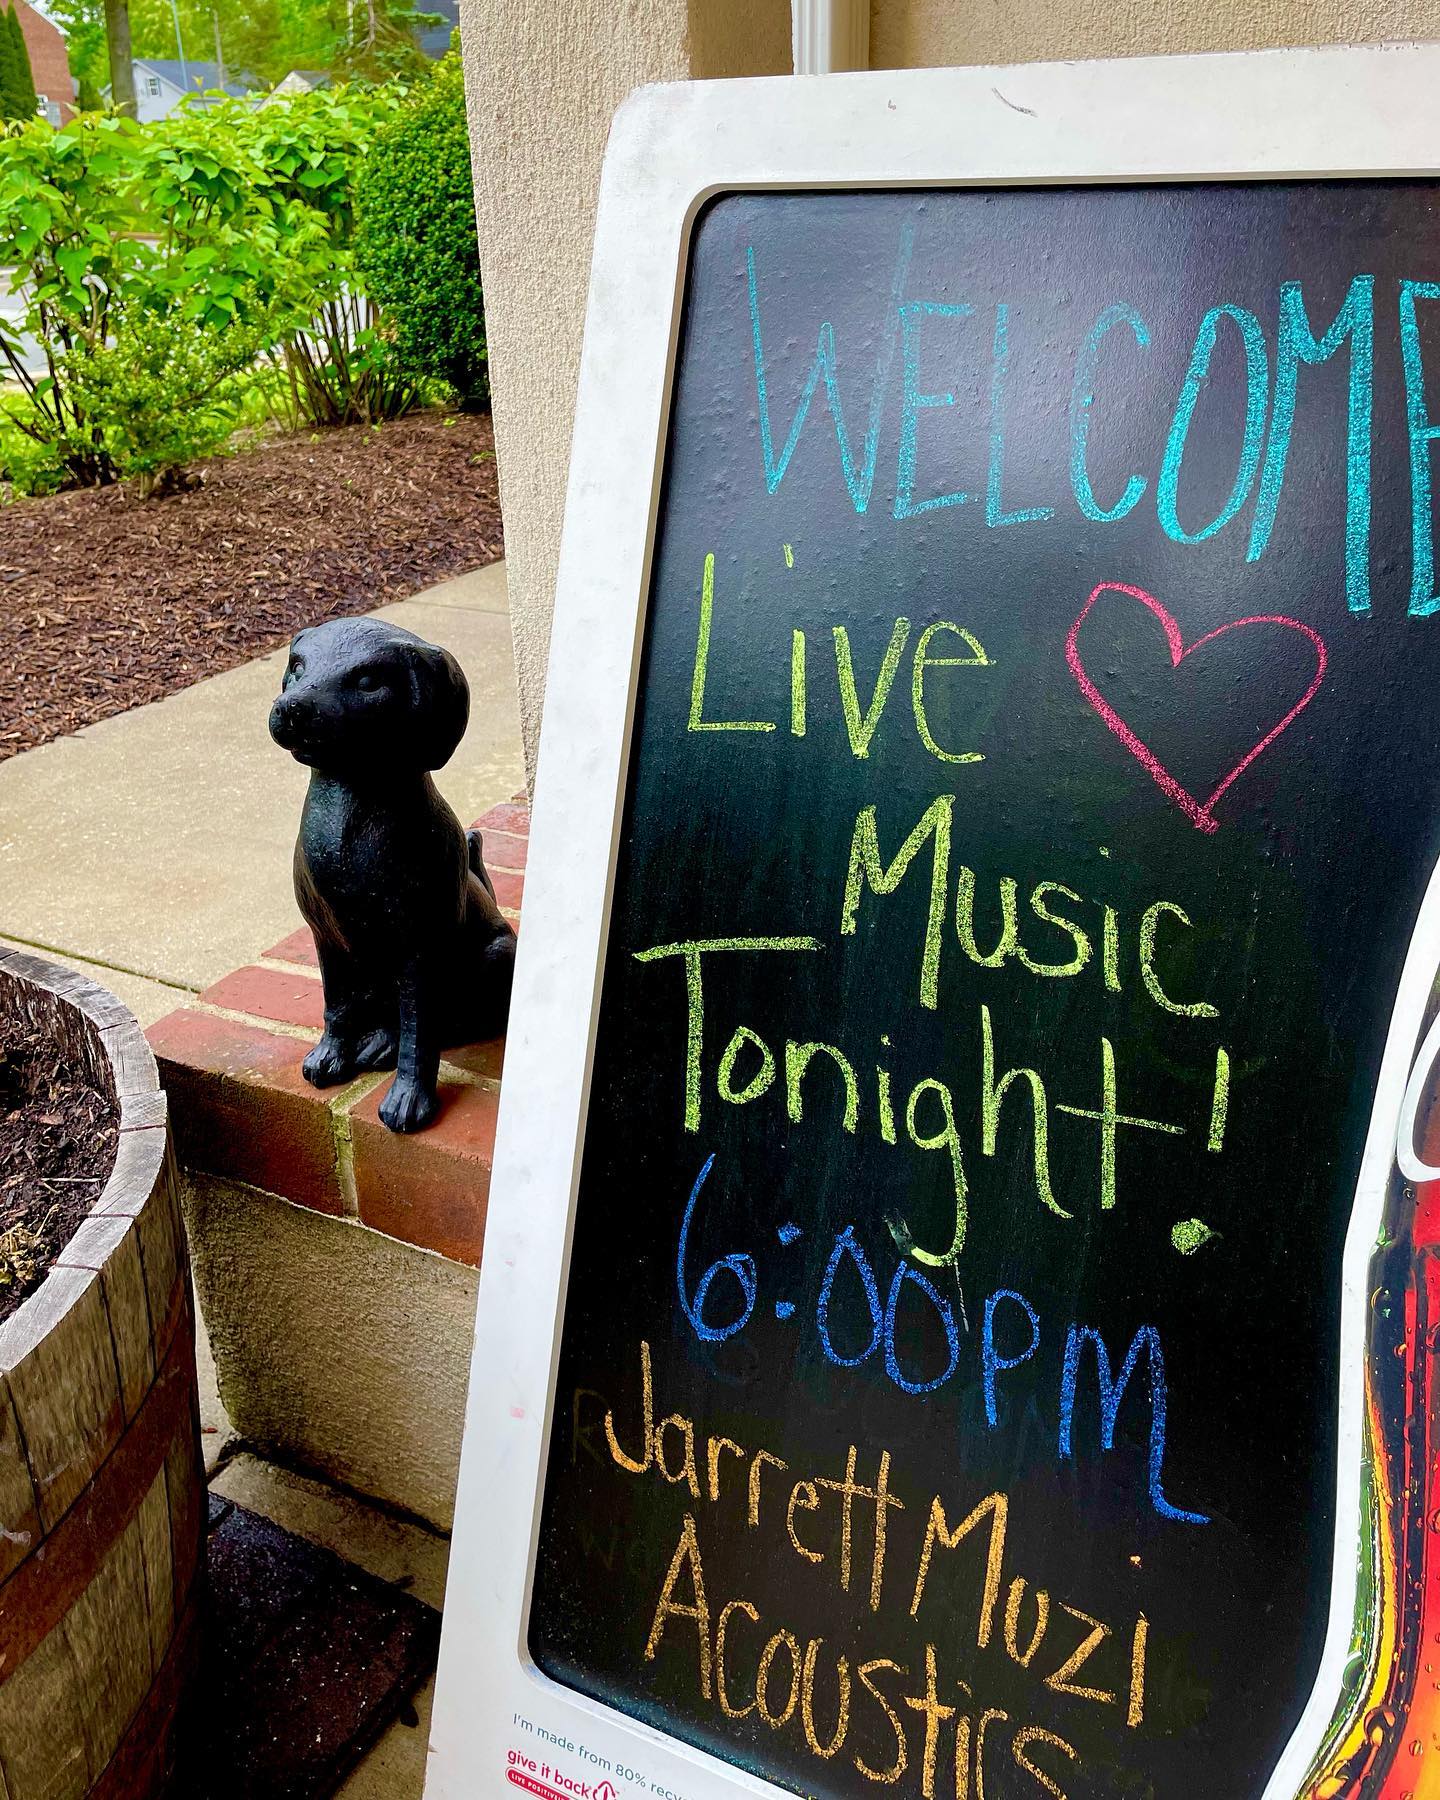 WELCOME
Live
Music
Tonight!
6:00PM
Jarrett Muzi
Acoustics
I'm made from 80%
give it back
LIVE POSITIVELY